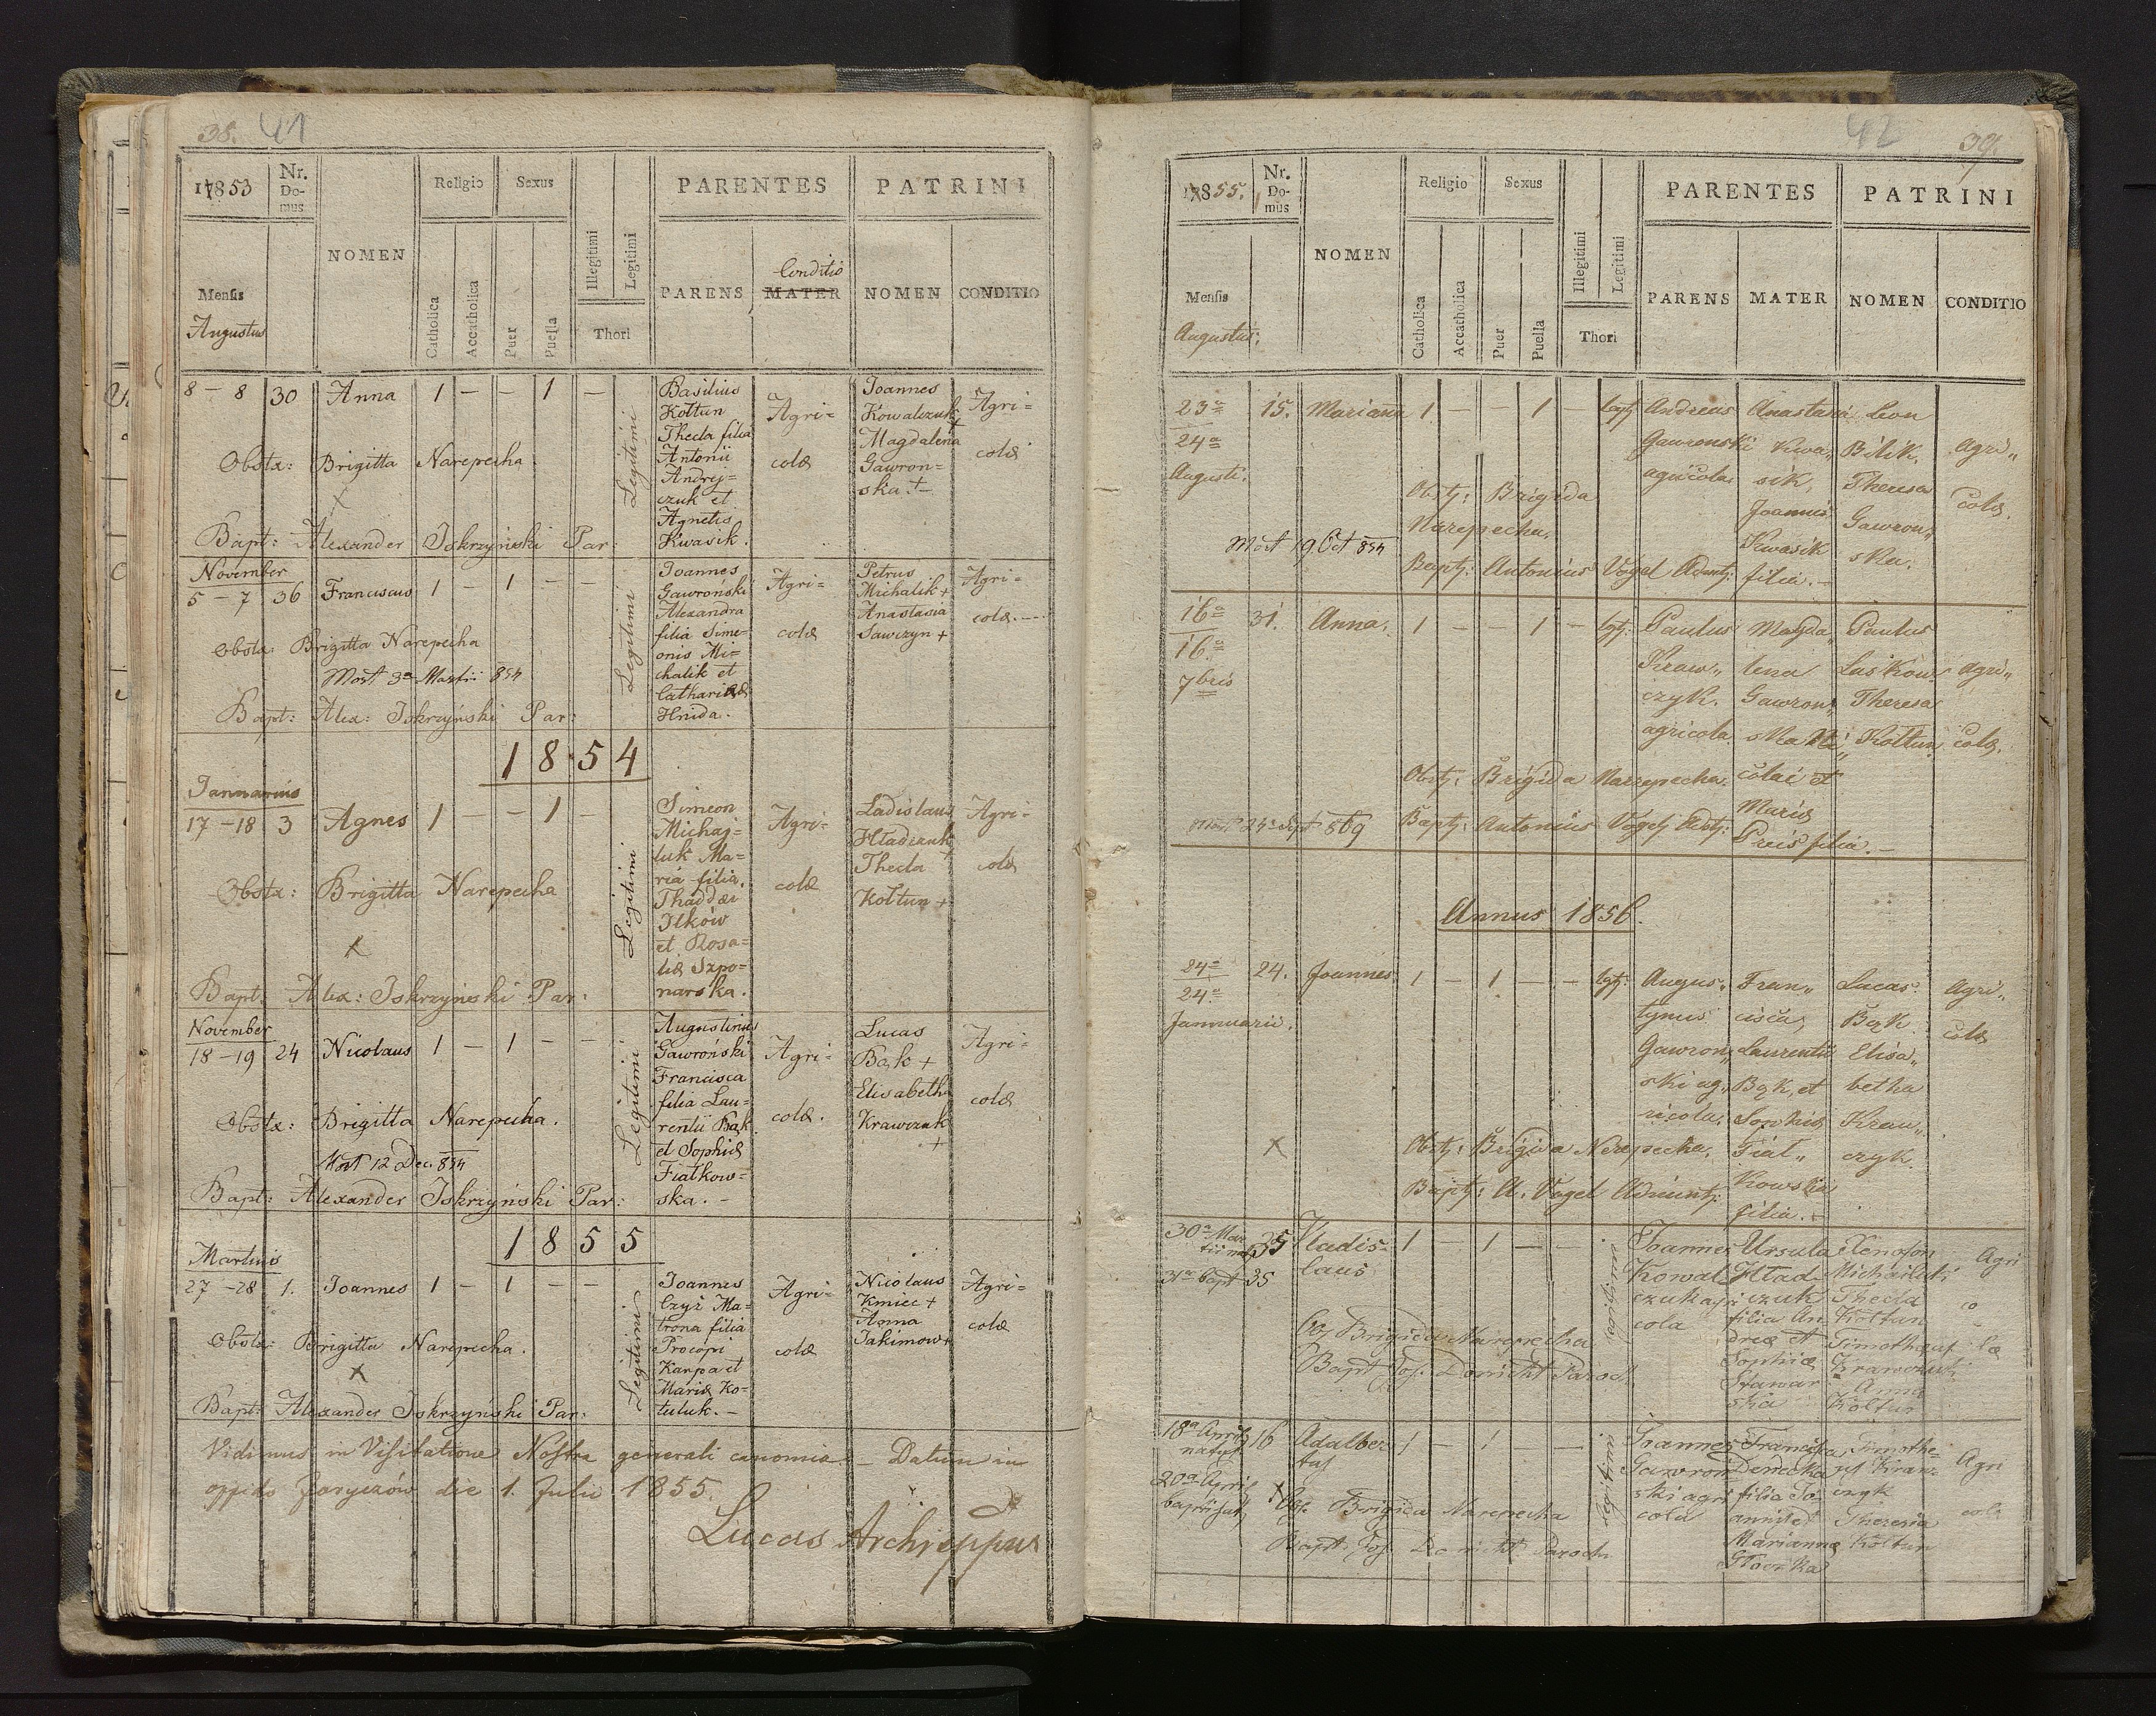 38. 41
17853 Nr. Domus NOMEN Religio Sexus PARENTES PATRINI
Catholica Accatholica Puer Puella Illegitimi Legitimi Thori
Conditio
PARENS MATER NOMEN CONDITIO
Mensis
Augustus
8 – 8 30 Anna 1 – – 1 –
Legitimi
Basilius
Kołtun
Thecla filia
Antonii
Andrij=
czuk et
Agnetis
Kwasik.
Agri=
colæ
Joannes
Kowalczuk +
Magdalena
Gawron=
ska. +
Agri=
colæ
Obstx: Brigitta Narepecha.
Bapt: Alexander Iskrzyński Par:
November
5 – 7 36 Franciscus 1 – 1 – –
Legitimi
Joannes
Gawroński
Alexandra
filia Sime=
onis Mi=
chalik et
Catharinæ
Hnida.
Agri=
colæ
Petrus
Michalik +
Anastasia
Sawczyn +
Agri=
colæ.
Obstx: Brigitta Narepecha
Mort 3a Martii 854
Bapt: Alex: Iskrzyński Par:
1854
Januarius
17 – 18 3 Agnes 1 – – 1 –
Legitimi
Simeon
Michaj=
luk Ma=
ria filia
Thaddæi
Ilków
et Rosa=
liæ Szpo=
narska.
Agri=
colæ
Ladislaus
Hładczuk +
Thecla
Kołtun +
Agri=
colæ
Obstx: Brigitta Narepecha
x
Bapt. Alex: Iskrzyński Par:
November
18 – 19 24 Nicolaus 1 – 1 – –
Legitimi
Augustinus
Gawroński
Francisca
filia Lau=
rentii Bąk
et Sophiæ
Fiałkow=
ska. –
Agri=
colæ.
Lucas
Bąk +
Elisabeth
Krawczuk
+
Agri=
colæ
Obstx: Brigitta Narepecha.
Mort 12 Dec. 854
Bapt: Alexander Iskrzyński Par:
1855
Martius
27 – 28 1. Joannes 1 – 1 – –
Legitimi
Joannes
Czyż Ma=
trona filia
Procopi
Karpa et
Mariæ Ko=
tuluk. –
Agri=
colæ
Nicolaus
Kmiec +
Anna
Jakimow +
Agri=
colæ
Obstx: Brigitta Narepecha.
x
Bapt: Alexander Iskrzyński Par:
Vidimus in Visitatione Nostra generali canonica – Datum in
oppido Jaryczów die 1. Julii 1855.
Lucas Archippus
42 39.
17855. Nr. Domus NOMEN Religio Sexus PARENTES PATRINI
Catholica Accatholica Puer Puella Illegitimi Legitimi Thori
PARENS MATER NOMEN CONDITIO
Mensis
Augustus.
23a
24a
Augusti.
15. Marianna 1 – – 1 – legtj
Andreas
Gawronski
agricola
Anastasia
Kwa„
sik,
Joannis
Kwasik
filia. –
Leon
Bilik.
Theresa
Gawron„
ska.
Agri„
colæ.
Obstj: Brigida
Narepecha.
Mort 19 Oct 854
Baptj: Antonius Vogel Admtj:
16a
16a
7bris
31. Anna. 1 – – 1 – legtj:
Paulus
Kraw„
czyk.
agricola.
Magda„
lena
Gawron„
ska Ni„
colai et
Mariæ
Preis filia. –
Paulus
Laskow
Theresa
Kołtun
Agri„
colæ.
Obstj: Brigida Narepecha.
Mort 24a Sept 869
Baptj: Antonius Vogel Admtj:
Annus 1856.
24a
24a
Januarii.
24. Joannes 1 – 1 – – legtj:
Augus„
tynus
Gawron„
ski ag„
ricola.
Fran„
cisca,
Laurentii
Bąk, et
Sophiæ
Fiał„
kowska
filia. –
Lucas
Bąk
Elisa„
betha
Kraw„
czyk.
Agri„
colæ
x
Obstj: Brigida Narepecha.
Baptj: A. Vogel Admintj:
30a Mar
tii nat
31a bapt
35
Vladis=
laus
1 – 1 – –
legitimi
Joannes
Kowal
czuk agri
cola
Ursula
Hład
czuk
filia An
dreæ et
Sophiæ
Stawar
ska
Xenofon
Michailuk
Thecla
Kołtun
Timotheus
Krawczuk
Anna
Kołtun
Agri
co
læ
Brigida Narepecha
Bapt Jos: Paroch
18a Aprilis
natus
20a Aprilis
baptisatus
16 Adalber
tus
1 – 1 –
legitimi
Joannes
Gawron
ski agri
cola
Francisca
filia Jo
annis et
Mariannæ
Timothe=
us Kraw=
czyk
Theresia
Kołtun
Agri
colæ
Brigida Narepecha
Bapt Jos: Paroch